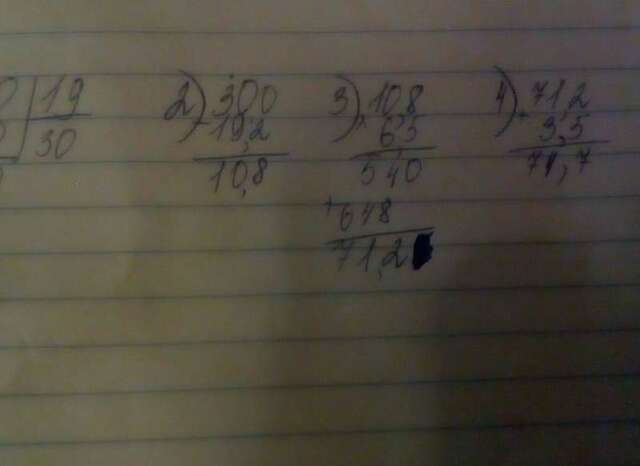 19
30
2) - 30,0
19,2
10,8
3) × 10,8
6,5
540
+ 648
71,2
4) + 71,2
3,5
74,7